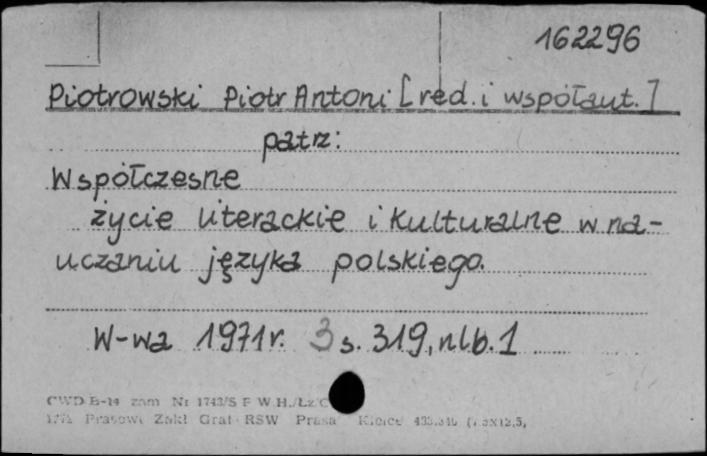 162296
Piotrowski Piotr Antoni [red. i współaut.]
patrz:
Współczesne
życie literackie i kulturalne w na-
uczaniu języka polskiego.
W-wa 1971 r. 3 s. 319, nlb. 1
CWD B-14 zam Nr 1743/S P W.H./Łż/C
Prasowe Zakł Graf RSW Prasa Kielce